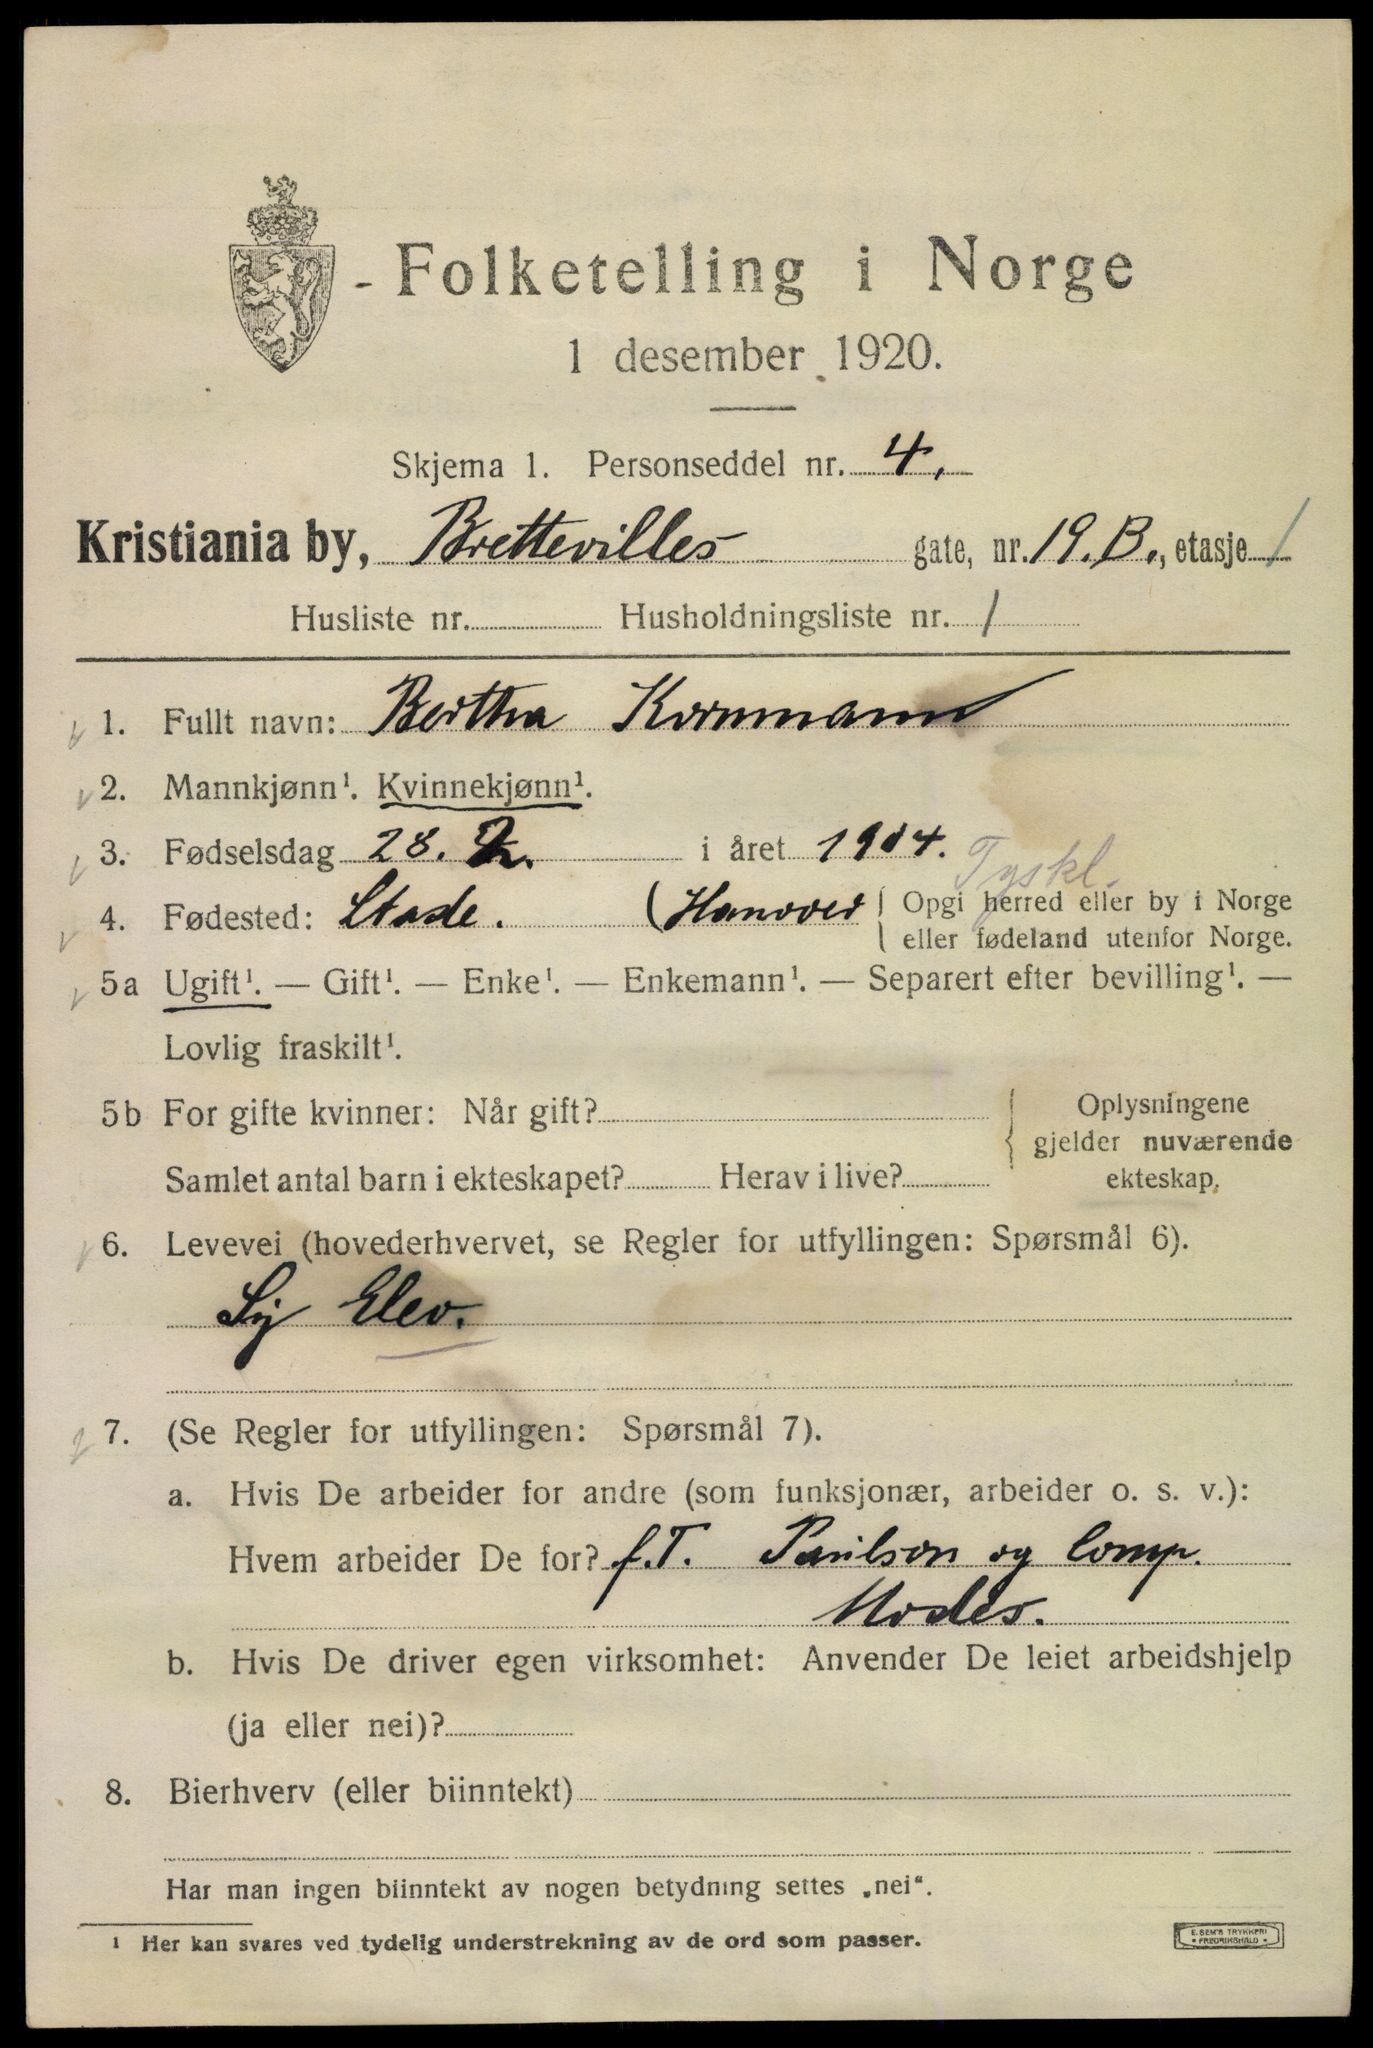 Folketelling i Norge
1 desember 1920.
Skjema 1. Personseddel nr. 4.
Kristiania by, Brettevilles gate, nr. 19.B., etasje 1
Husliste nr. Husholdningsliste nr. 1
1. Fullt navn: Bertha Kornmann
2. Mannkjønn¹. Kvinnekjønn¹.
3. Fødselsdag 28. 2. i året 1904.
Tyskl.
4. Fødested: Stade. (Hanover Opgi herred eller by i Norge
eller fødeland utenfor Norge.
5a Ugift¹. — Gift¹. — Enke¹. — Enkemann¹. — Separert efter bevilling¹. —
Lovlig fraskilt¹.
5b For gifte kvinner: Når gift? Oplysningene
gjelder nuværende
Samlet antal barn i ekteskapet? Herav i live? ekteskap.
6. Levevei (hovederhvervet, se Regler for utfyllingen: Spørsmål 6).
Sy Elev.
7. (Se Regler for utfyllingen: Spørsmål 7).
a. Hvis De arbeider for andre (som funksjonær, arbeider o. s. v.):
Hvem arbeider De for? f.T. Paulson og Comp.
Modes.
b. Hvis De driver egen virksomhet: Anvender De leiet arbeidshjelp
(ja eller nei)?
8. Bierhverv (eller biinntekt)
Har man ingen biinntekt av nogen betydning settes „nei“.
¹ Her kan svares ved tydelig understrekning av de ord som passer.
E. SEM'S TRYKKERI
• FREDRIKSHALD •